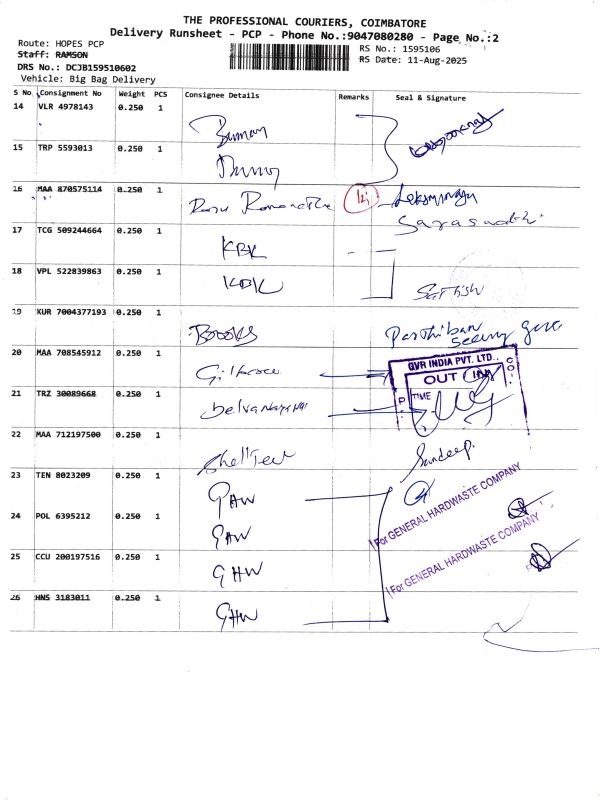 THE PROFESSIONAL COURIERS, COIMBATORE
Delivery Runsheet - PCP - Phone No.:9047080280 - Page No.:2
Route: HOPES PCP
Staff: RAMSON
DRS No.: DCJB159510602
Vehicle: Big Bag Delivery
RS No.: 1595106
RS Date: 11-Aug-2025
S No. Consignment No Weight PCS Consignee Details Remarks Seal & Signature
14 VLR 4978143 0.250 1
15 TRP 5593013 0.250 1
16 MAA 870575114 0.250 1
Saraswathi
17 TCG 509244664 0.250 1 KBK
18 VPL 522839863 0.250 1 KBK Sathish
19 KUR 7004377193 0.250 1 Books Parthiban
20 MAA 708545912 0.250 1
GVR INDIA PVT. LTD.,
OUT IN
TIME
21 TRZ 30089668 0.250 1
22 MAA 712197500 0.250 1 Sandeep.
23 TEN 8023209 0.250 1 GHW
For GENERAL HARDWASTE COMPANY
24 POL 6395212 0.250 1 GHW
For GENERAL HARDWASTE COMPANY
25 CCU 200197516 0.250 1 GHW
26 HNS 3183011 0.250 1 GHW